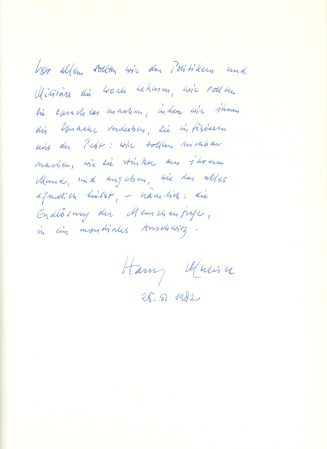 Vor allem sollten wir den Politikern und
Militärs die Worte nehmen, wir sollten
sie sprachlos machen, indem wir ihnen
die Sprache verderben, sie infizieren
mit der Pest: wir sollten riechbar
machen, wie sie stinken aus ihrem
Munde, und angeben, wie das alles
eigentlich heisst, – nämlich: die
Endlösung der Menschenfrage,
in ein mondiales Auschwitz.
Harry Mulisch
25. 1982